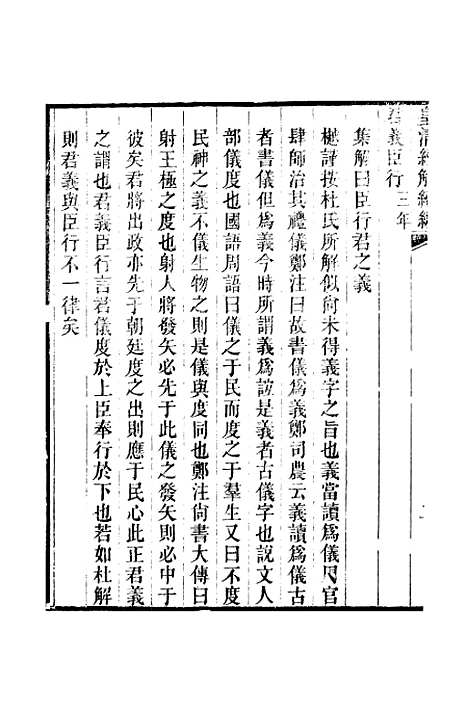 皇清經解續編
君義臣行三年
集解曰臣行君之義
樾謹按杜氏所解似尚未得義字之旨也義當讀爲儀周官
肆師治其禮儀鄭注曰故書儀爲義鄭司農云義讀爲儀古
者書儀但爲義今時所謂義爲誼是義者古儀字也說文人
部儀度也國語周語曰儀之于民而度之于羣生又曰不度
民神之義不儀生物之則是儀與度同也鄭注尙書大傳曰
射王極之度也射人將發矢必先于此儀之發矢則必中于
彼矣君將出政亦先于朝廷度之出則應于民心此正君義
之謂也君義臣行言君儀度於上臣奉行於下也若如杜解
則君義與臣行不一律矣